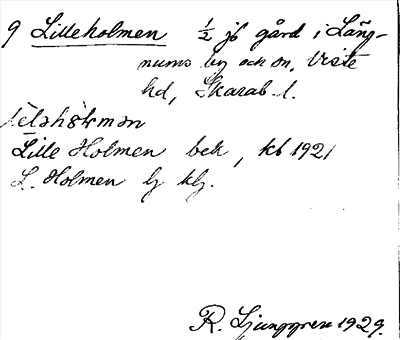 9 Lilleholmen ½ jb gård i Lång-
nums by och sn, Viste
hd, Skarab. l.
Lille Holmen bek, kb 1921
L. Holmen lj klj.
R. Ljunggren 1929.